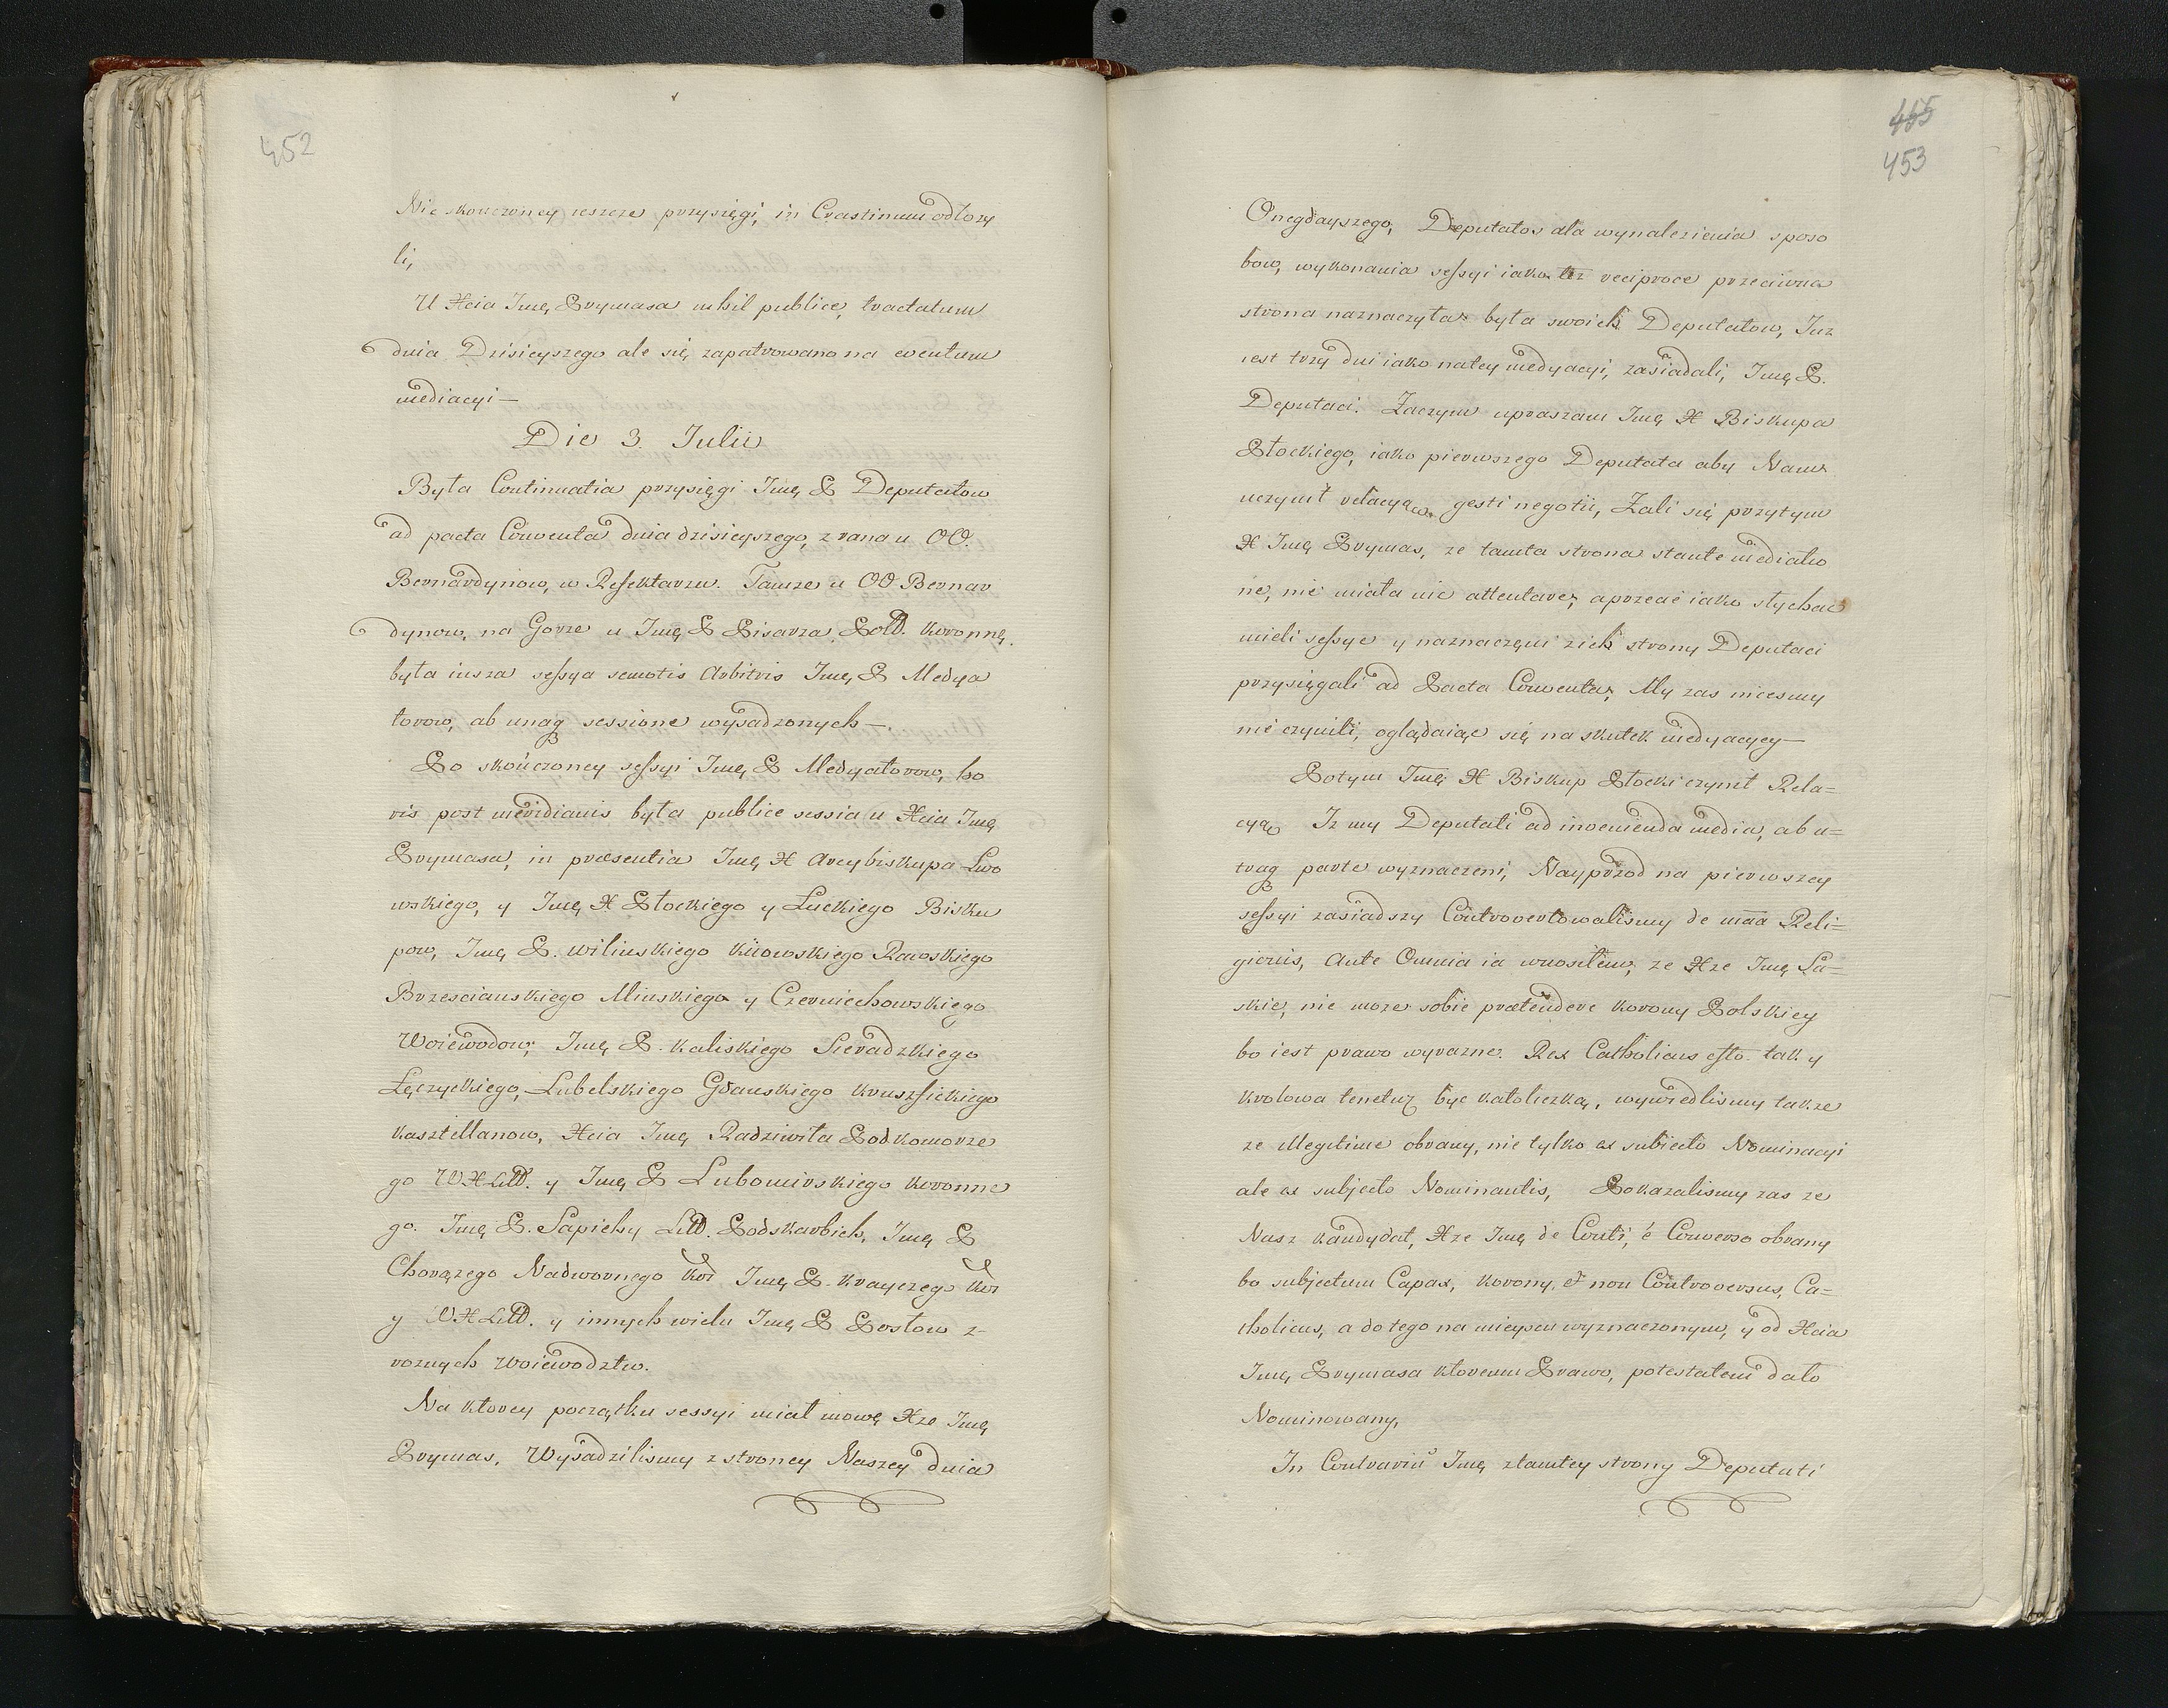 452
Nie skonczoney ieszcze przysięgi, in Crastinum odłozy
li,
U Xcia Jmę Prymasa nihil publice, tractatum
dnia Dzisieyszego ale się zapatrowano na eventum
mediacyi —
Die 3. Julii
Była Continuatia przysięgi Jmę P Deputatow
ad pacta Conventa dnia dzisieyszego, z rana u OO.
Bernardynow, w Refektarzu. Tamze u OO Bernar
dynow, na Gorze u Jmę P Pisarza Pold. koronnę.
była insza sessya semotis Arbitris Jmę P Medya
torow, ab utraq sessione wysadzonych —.
Po skończoney sessyi Jmę P Medyatorow, ho
ris post meridianis była publice sessia u Xcia Jmę
Prymasa, in præsentia Jmę X Arcybiskupa Lwo
wskiego, y Jmę X Płockiego y Łuckiego Bisku
pow, Jmę P. wilinskiego kiiowskiego Rawskiego
Brzescianskiego Minskiego y Czerniechowskiego
Woiewodow; Jmę P. kaliskiego Sieradzkiego
Łęczyckiego, Lubelskiego Gdanskiego kruszfickiego
kasztellanow, Xcia Jmę Radziwiła Podkomorze
go WXLittd. y Jmę P Lubomirskiego koronne
go. Jmę P. Sapiehy Littd. Podskarbich, Jmę P
Chorązego Nadwornego kor Jmę P. krayczego kor
y WXLittd. y innych wielu Jmę P Posłow z
roznych Woiewodztw.
Na ktorey początku sessyi miał mowę Xze Jmę
Prymas. Wysadzilismy z stroney Naszey dnia
465
453
Onegdayszego, Deputatos dla wynalezienia sposo
bow, wykonania sessyi iako tez reciproce przeciwna
strona naznaczyła była swoich Deputatow, Juz
iest trzy dni iako na tey medyacyi, zasiadali, Jmę P.
Deputaci. Zaczym upraszam Jmę X Biskupa
Płockiego, iako pierwszego Deputata aby Nam
uczynił relacyą gesti negotii, Zali się przytym
X Jmę Prymas, ze tamta strona stante mediatio
ne, nie miała nic attentare, a przecie iako słychac
mieli sessye y naznaczęni z ich strony Deputaci
przysięgali ad Pacta Conventa, My zas nicesmy
nie czynili, oglądaiąc się na skutek medyacyey —
Potym Jmę X Biskup Płocki czynił Rela=
cyą Iz my Deputati ad invenienda media, ab u=
traq parte wyznaczeni, Nayprzod na pierwszey
sessyi zasiadszy Controvertowalismy de mãa Reli=
gionis, Ante Omnia ia wnosiłem, ze Xze Jmę Sa=
skie, nie moze sobie prætendere korony Polskiey
bo iest prawo wyrazne. Rex Catholicus esto. tak y
krolowa tenetur byc katoliczką, wywiedlismy takze
ze illegitime obrany, nie tylko ex subiecto Nominacyi
ale ex subjecto Nominantis, Pokazalismy zas ze
Nasz kandydat, Xze Jmę de Conti, é Converso obrany
bo subjectum Capax, korony, et non Controversus, Ca=
tholicus, a do tego na mieyscu wyznaczonym, y od Xcia
Jmę Prymasa ktoremu Prawo, potestatem dało
Nominowany,
In Contrariũ Jmę z tamtey strony Deputati